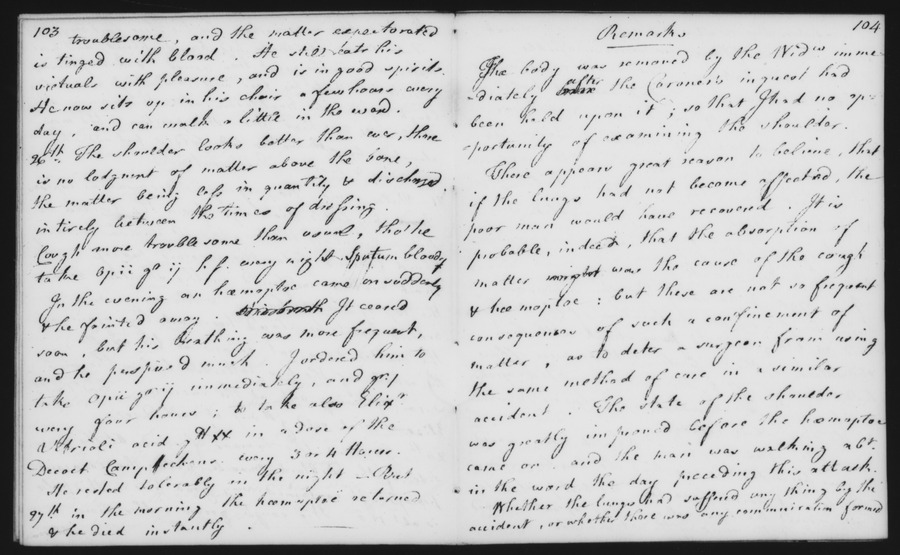 103
troublesome, and the matter expectorated
is tinged with blood. He still eats his
victuals with pleasure, and is in good spirits.
He now sits up in his chair a few hours every
day, and can walk a little in the ward.
26th. The shoulder looks better than ever, there
is no lodgment of matter above the bone,
the matter being less in quantity & discharged
intirely between the times of dressing.
Cough more troublesome than usual, tho' he
take opii gr ij h.s. every night. Sputum bloody
In the evening an hæmoptoe came on suddenly
& he fainted away. It ceased
soon, but his breathing was more frequent,
and he perspired much. I ordered him to
take opii gr ij immediately, and gr j
every four hours; & to take also Elixr
Vitrioli acid gtt xx in a dose of the
Decoct Campechens. every 3 or 4 Hours.
He rested tolerably in the night — But
27th in the morning the hæmoptoe returned
& he died instantly.
104
Remarks
The body was removed by the Widow imme-
-diately after the Coroner's inquest had
been held upon it; so that I had no op-
-portunity of examining the shoulder.
There appears great reason to believe, that
if the lungs had not become affected, the
poor man would have recovered. It is
probable, indeed, that the absorption of
matter was the cause of the cough
& hæmoptoe: but these are not so frequent
consequences of such a confinement of
matter, as to deter a surgeon from using
the same method of cure in a similar
accident. The state of the shoulder
was greatly improved before the hæmoptoe
came on and the man was walking abt.
in the ward the day preceding this attack.
Whether the lungs had suffered any thing by the
accident, or whether there was any communication formed